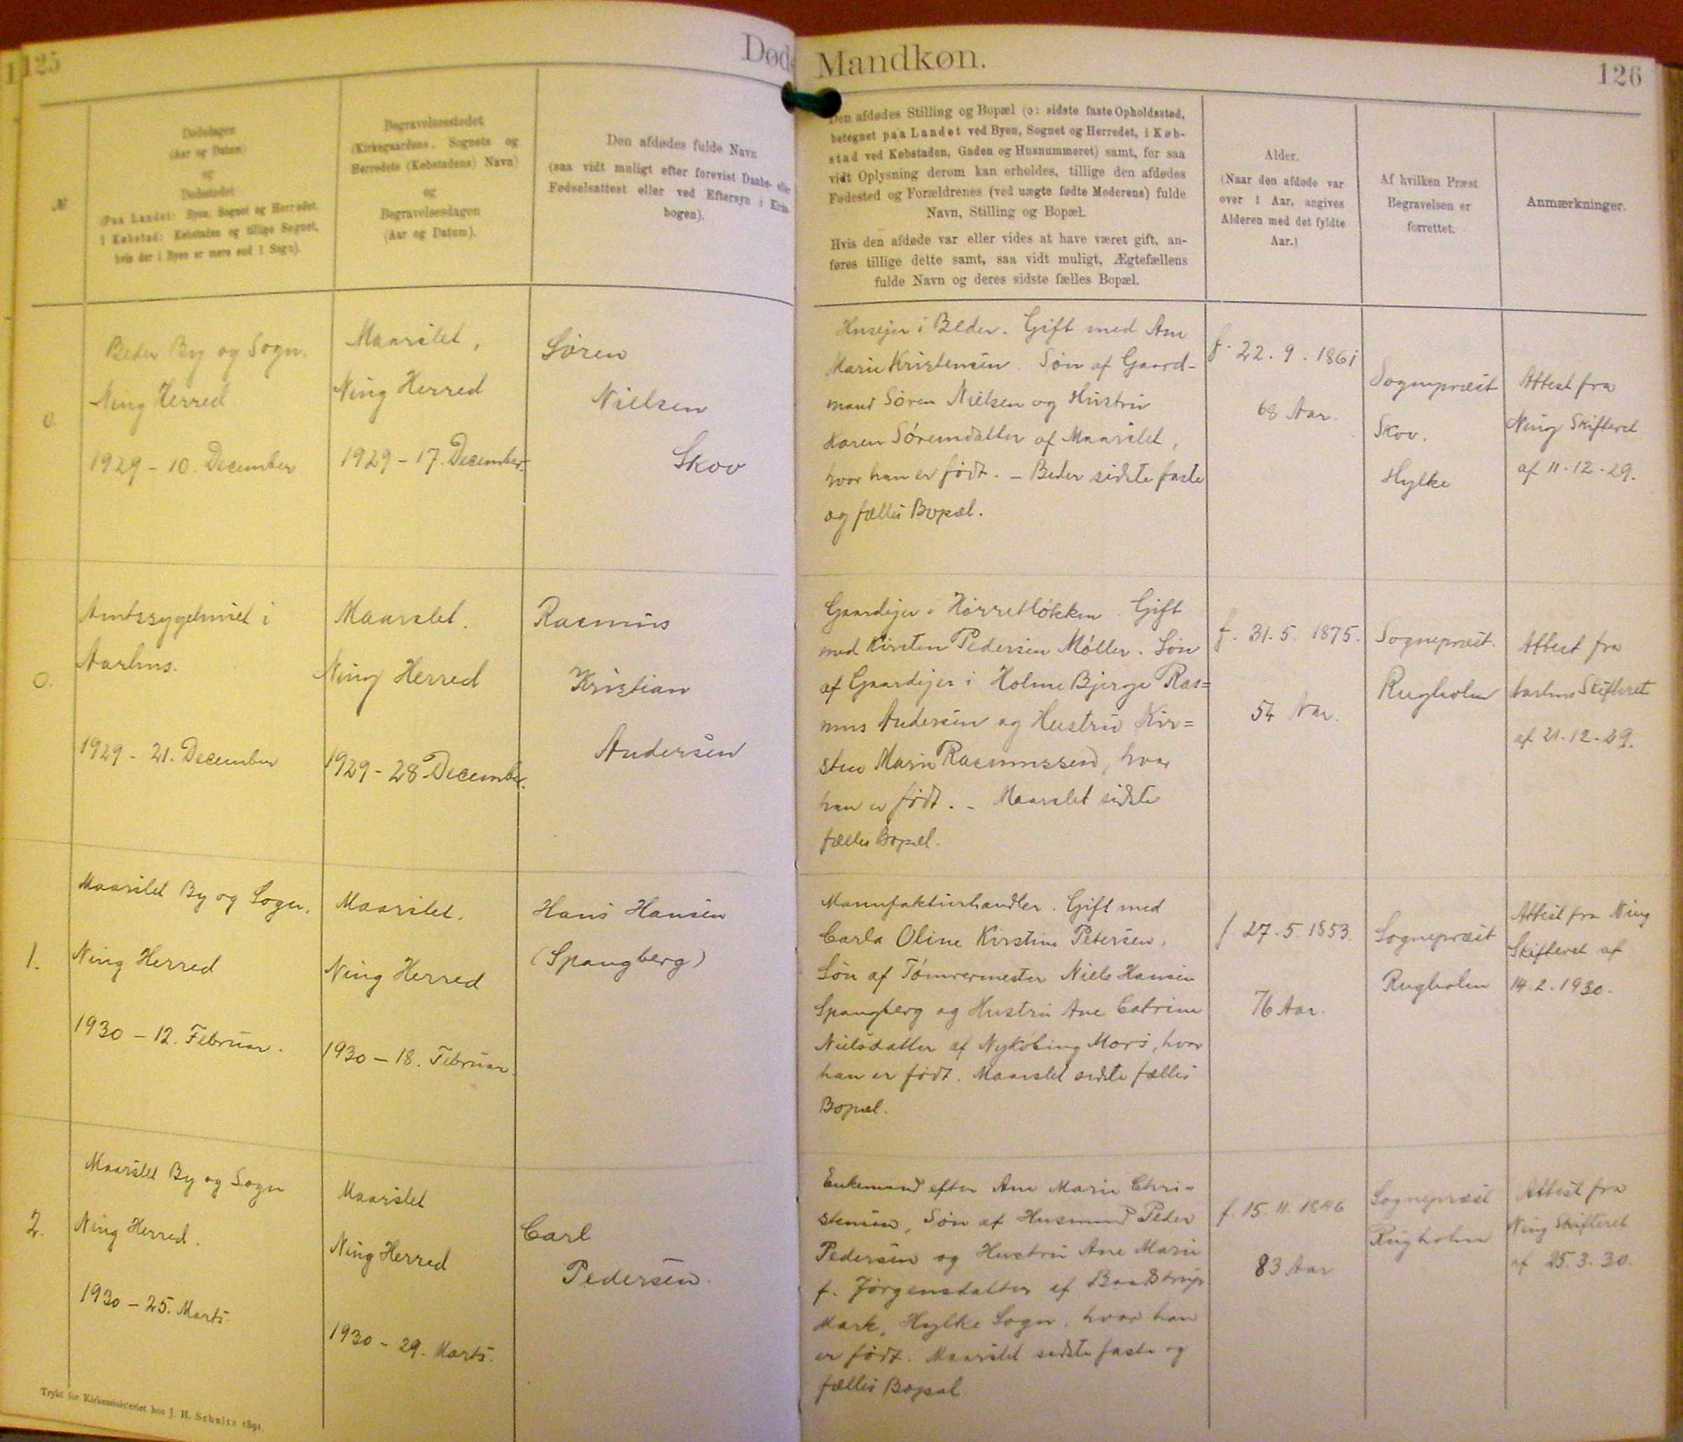 125
Død-
№
Dødsdagen
(Aar og Datum)
og
Dødsstedet
(Paa Landet: Byen, Sognet og Herredet,
i Købstad: Købstaden og tillige Sognet,
hvis der i Byen er mere end 1 Sogn).
Begravelsesstedet
(Kirkegaardens, Sognets og
Herredets (Købstadens) Navn)
og
Begravelsesdagen
(Aar og Datum).
Den afdødes fulde Navn
(saa vidt muligt efter forevist Daabs- eller
Fødselsattest eller ved Eftersyn i Kirke-
bogen).
0.
Beder By og Sogn.
Ning Herred
1929 - 10. December
Maarslet,
Ning Herred
1929 - 17. December.
Søren
Nielsen
Skov
0.
Amtssygehuset i
Aarhus.
1929 - 21. December
Maarslet.
Ning Herred
1929 - 28. December.
Rasmus
Kristian
Andersen
1.
Maarslet By og Sogn.
Ning Herred
1930 - 12. Februar.
Maarslet.
Ning Herred
1930 - 18. Februar.
Hans Hansen
(Spangberg)
2.
Maarslet By og Sogn
Ning Herred.
1930 - 25. Marts
Maarslet
Ning Herred
1930 - 29. Marts.
Carl
Pedersen.
Trykt for Kirkeministeriet hos J. H. Schultz 1891
Mandkøn.
126
Den afdødes Stilling og Bopæl (o: sidste faste Opholdssted,
betegnet paa Landet ved Byen, Sognet og Herredet, i Køb-
stad ved Købstaden, Gaden og Husnummeret) samt, for saa
vidt Oplysning derom kan erholdes, tillige den afdødes
Fødested og Forældrenes (ved uægte fødte Moderens) fulde
Navn, Stilling og Bopæl.
Hvis den afdøde var eller vides at have været gift, an-
føres tillige dette samt, saa vidt muligt, Ægtefællens
fulde Navn og deres sidste fælles Bopæl.
Alder.
(Naar den afdøde var
over 1 Aar, angives
Alderen med det fyldte
Aar.)
Af hvilken Præst
Begravelsen er
forrettet.
Anmærkninger.
Husejer i Beder. Gift med Ane
Marie Kristensen. Søn af Gaard-
mand Søren Nielsen og Hustru
Karen Sørensdatter af Maarslet,
hvor han er født. - Beder sidste faste
og fælles Bopæl.
f. 22. 9. 1861
68 Aar.
Sognepræst
Skov.
Hylke
Attest fra
Ning Skifteret
af 11-12-29.
Gaardejer i Hørretløkken. Gift
med Kirsten Pedersen Møller. Søn
af Gaardejer i Holme Bjerge Ras=
mus Andersen og Hustru Kir=
stine Marie Rasmussen, hvor
han er født. - Maarslet sidste
fælles Bopæl.
f. 31. 5. 1875.
54 Aar.
Sognepræst.
Rugholm
Attest fra
Aarhus Skifteret
af 21-12-29.
Manufakturhandler. Gift med
Carla Oline Kirstine Petersen.
Søn af Tømrermester Niels Hansen
Spangberg og Hustru Ane Catrine
Nielsdatter af Nykøbing Mors, hvor
han er født. Maarslet sidste fælles
Bopæl.
f. 27. 5. 1853.
76 Aar.
Sognepræst
Rugholm
Attest fra Ning
Skifteret af
14. 2. 1930.
Enkemand efter Ane Marie Chri-
stensen, Søn af Husmand Peder
Pedersen og Hustru Ane Marie
f. Jørgensdatter af Baastrup
Mark, Hylke Sogn, hvor han
er født. Maarslet sidste faste og
fælles Bopæl
f. 15. 11. 1846
83 Aar
Sognepræst
Rugholm
Attest fra
Ning Skifteret
af 25. 3. 30.